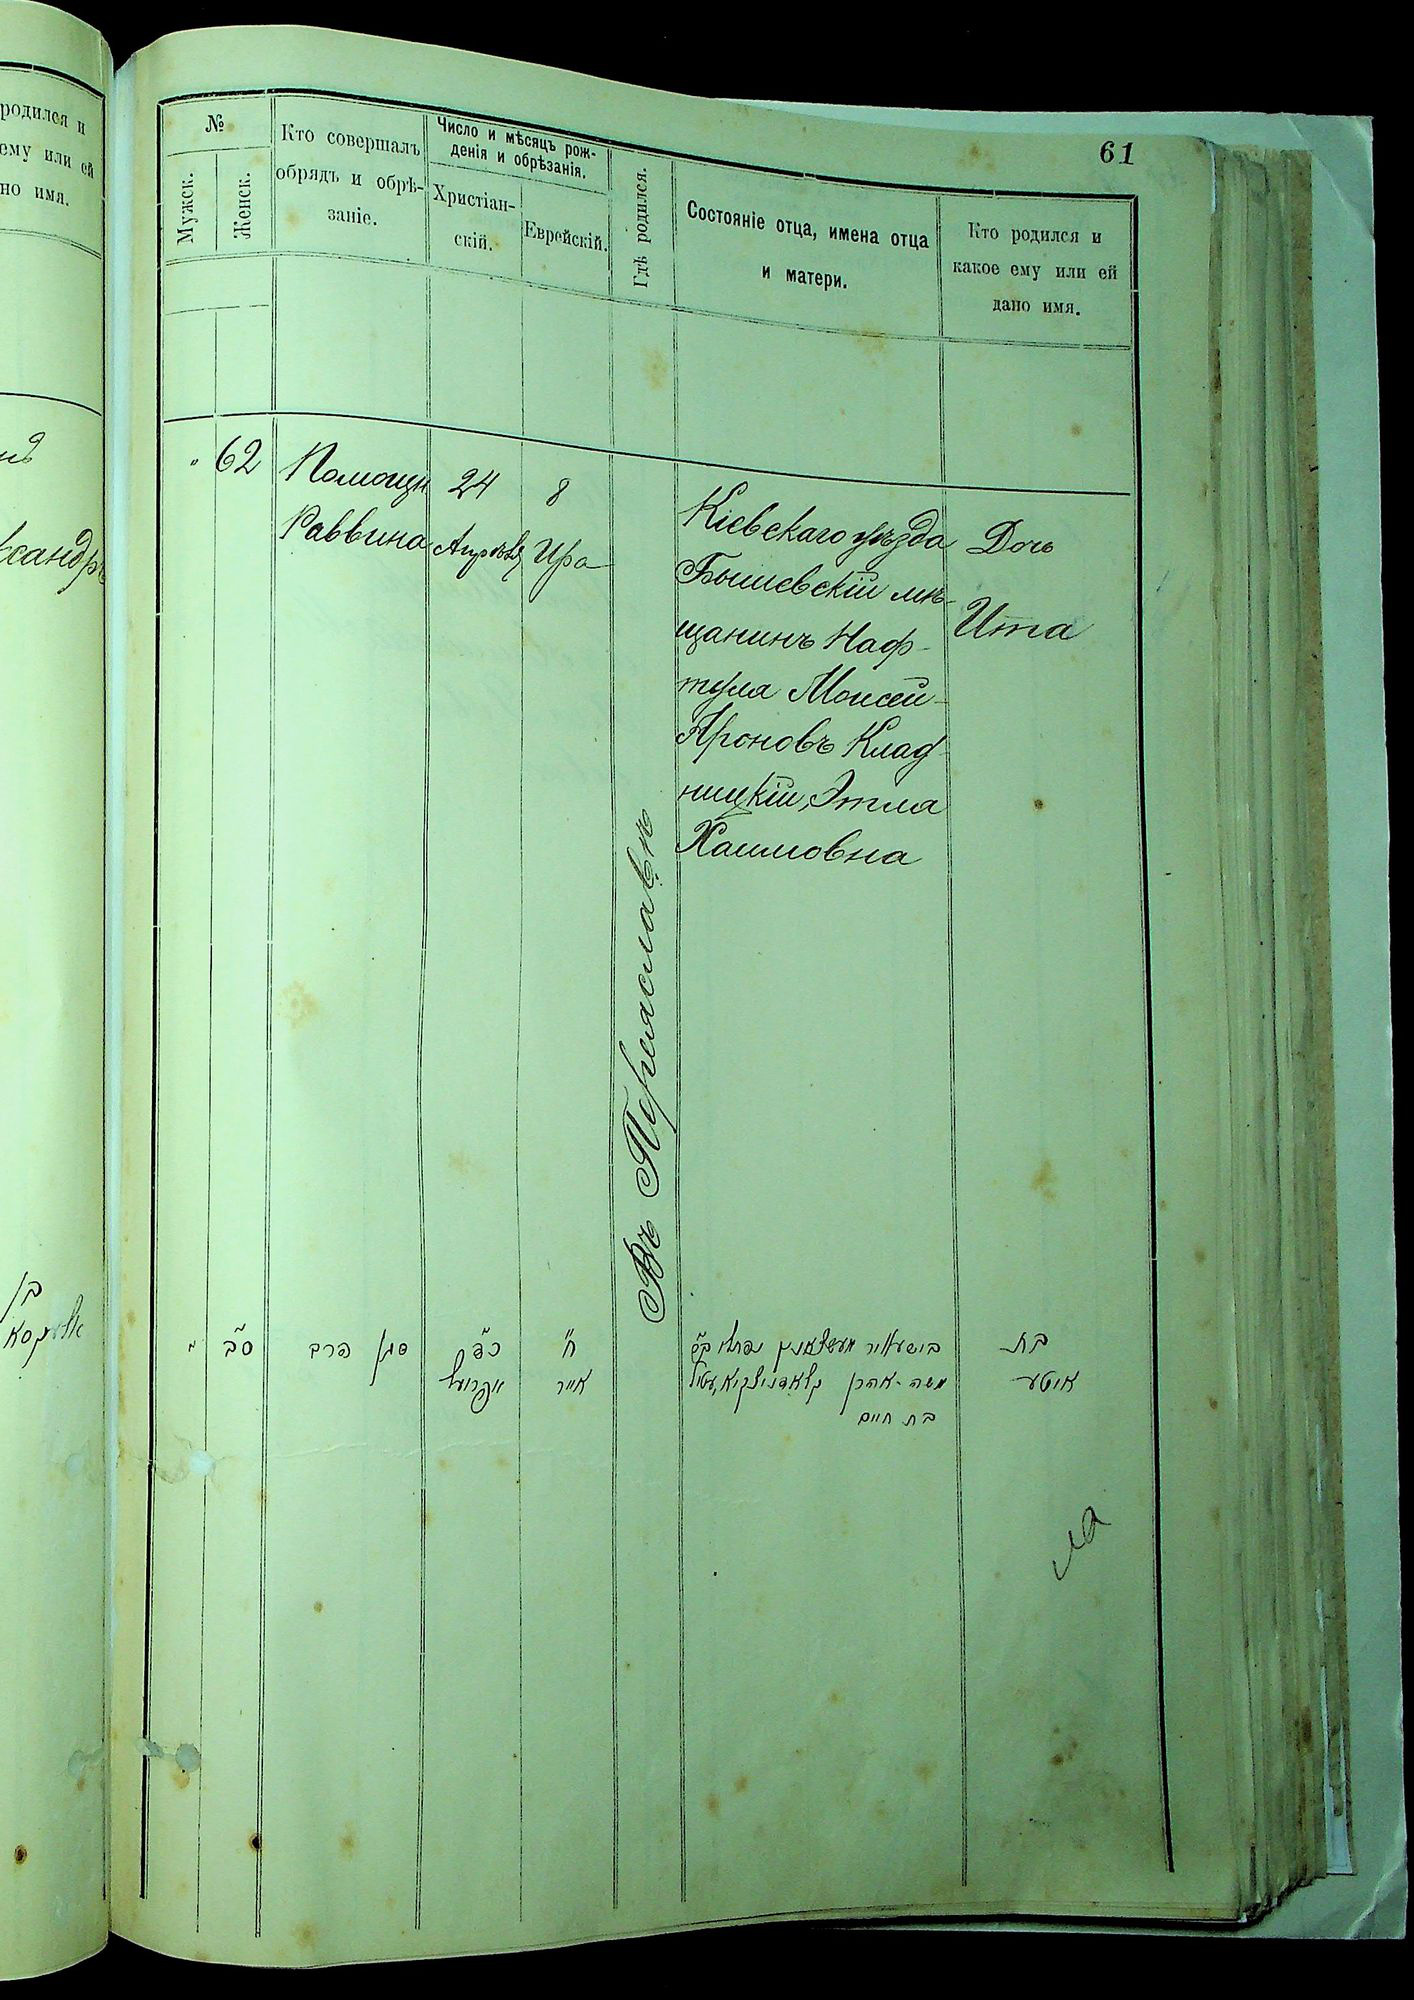 родился и
ему или ей
но имя.
61
№
Мужск.
Женск.
Кто совершалъ
обрядъ и обрѣ-
заніе.
Число и мѣсяцъ рож-
денія и обрѣзанія.
Христіан-
скій.
Еврейскій.
Гдѣ родился.
Состояніе отца, имена отца
и матери.
Кто родился и
какое ему или ей
дано имя.
" 62
Помощн
Раввина
24
Апрѣля
8
Ира
Въ Переяславѣ
Кіевскаго уѣзда
Бышевскій мѣ-
щанинъ Наф-
тула Моисей-
Ароновъ Клад
ницкій, Этля
Хаимовна
Дочь
Ита
ксандръ
בן
" סב
סגן הרב
כ״ד
אפריעל
ח׳
אייר
נפתלי בן
משה-אהרן קלאדניצקיא, עטיל
בת חיים
בת
איטע